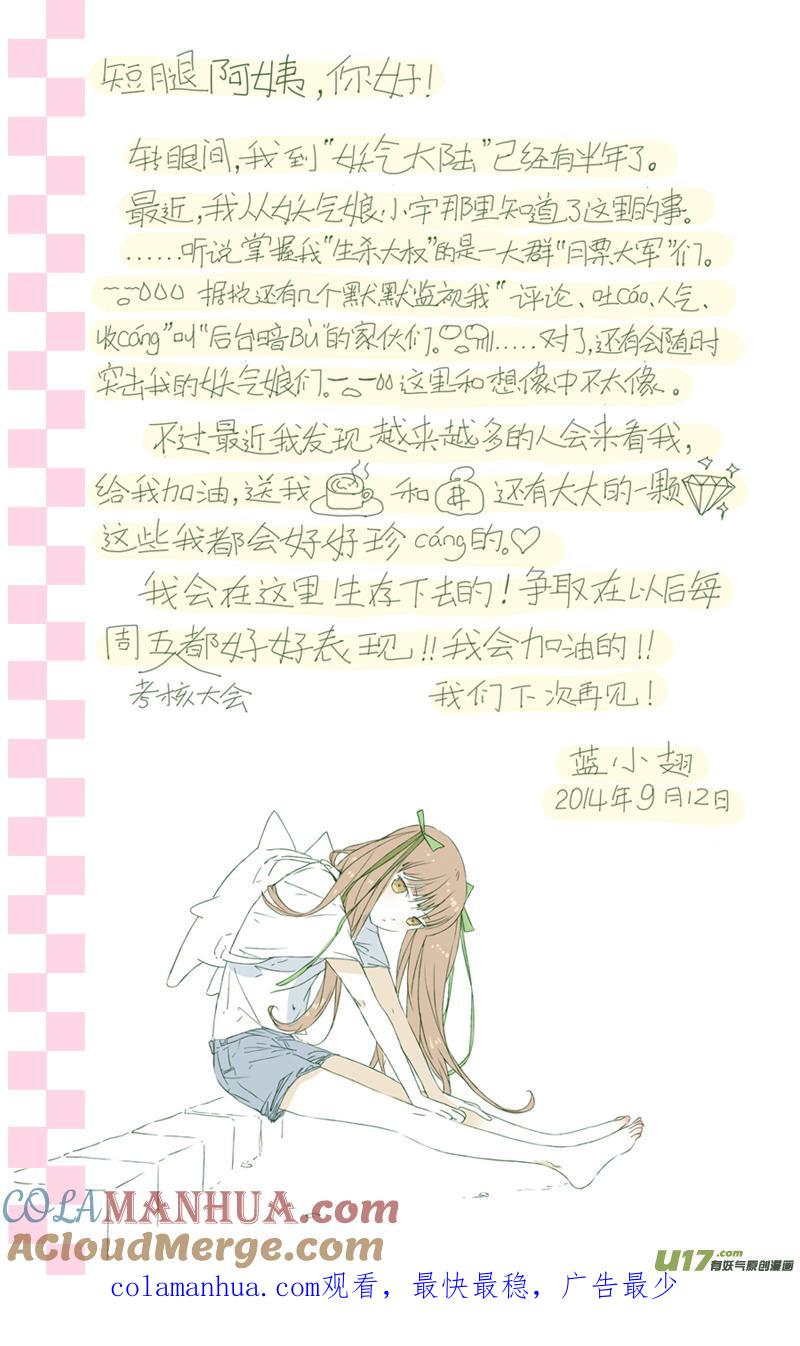 短腿阿姨，你好！
转眼间，我到“妖气大陆”已经有半年了。
最近，我从妖气娘小宇那里知道了这里的事。
……听说掌握我“生杀大权”的是一大群“月票大军”们。
据说还有几个默默监视我“评论、吐cáo、人气、
收cáng”叫“后台暗Bù”的家伙们。……对了，还有会随时
突击我的妖气娘们。这里和想像中不太像。
不过最近我发现越来越多的人会来看我，
给我加油，送我 和 还有大大的一颗
这些我都会好好珍cáng的。♡
我会在这里生存下去的！争取在以后每
周五都好好表现！！我会加油的！！
考核大会 我们下次再见！
蓝小翅
2014年9月12日
COLAMANHUA.com
ACloudMerge.com
U17.com
有妖气原创漫画
colamanhua.com观看，最快最稳，广告最少